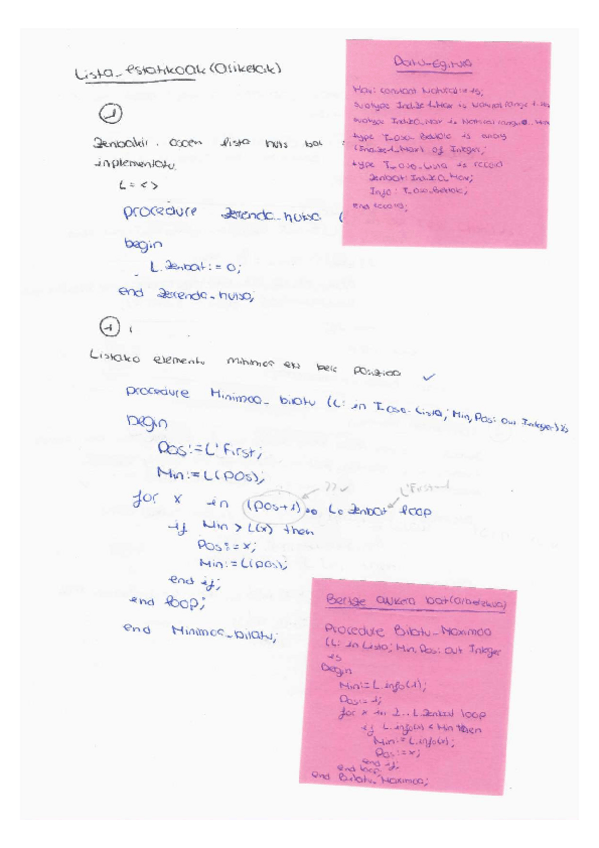 Lista_estatikoak (Ariketak)
1
Zenbakiz osoen lista huts bat
inplementatu.
L = < >
procedure Zerenda_hutsa (
begin
L.Zenbat := 0;
end Zerenda_hutsa;
Datu-egitura
Max: constant Natural :=
subtype Index is Natural range 1..
subtype
type T_Oso_Bektore is array
of Integer;
type T_Oso_Lista is record
Zenbat:
Info: T_Oso_Bektore;
end record;
Listako elementu minimoa eta bere posizioa ✓
procedure Minimoa_bilatu (L: in T_Oso_Lista; Min, Pos: out Integer) is
begin
Pos := L'First;
Min := L(Pos);
for x in (Pos+1).. L.Zenbat loop
?? ✓
L'First+1
if Min > L(x) then
Pos := x;
Min := L(pos);
end if;
end loop;
end Minimoa_bilatu;
Beste aukera bat
Procedure Bilatu_Maximoa
(L: in Lista; Min, Pos: out Integer
is
Begin
Min := L.info(1);
Pos := 1;
for x in 2..L.Zenbat loop
if L.info(x) < Min then
Min := L.info(x);
Pos := x;
end if;
end loop;
end Bilatu_Maximoa;